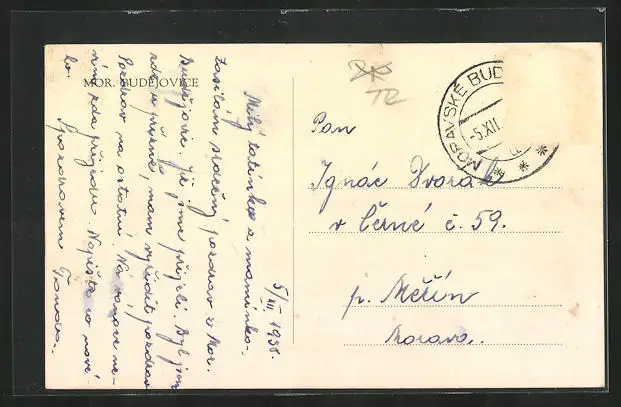 MOR. BUDĚJOVICE
5/XII 1938.
Milý tatínku a maminko.
Zasílám srdečný pozdrav z Mor.
Budějovic. Již jsme přijeli. Byl jsem
na ostatní. Na vánoce ne-
vím zda přijedu. Napište co nové-
ho. S pozdravem
MORAVSKÉ BUD
-5.XII
Pan
Ignác Dvorak
v Černé č. 59.
p. Měřín
Morava.